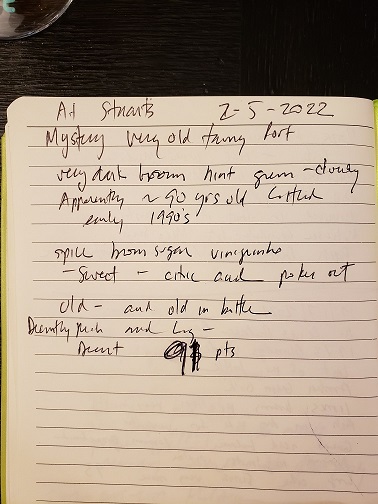 At Stuart's 2-5-2022
Mystery very old tawny Port
very dark brown hint green - cloudy
Apparently ~ 90 yrs old bottled
early 1990's
spice brown sugar
- Sweet - citric acid pokes out
Old - and old in bottle
Decently rich and
Decent 91 pts